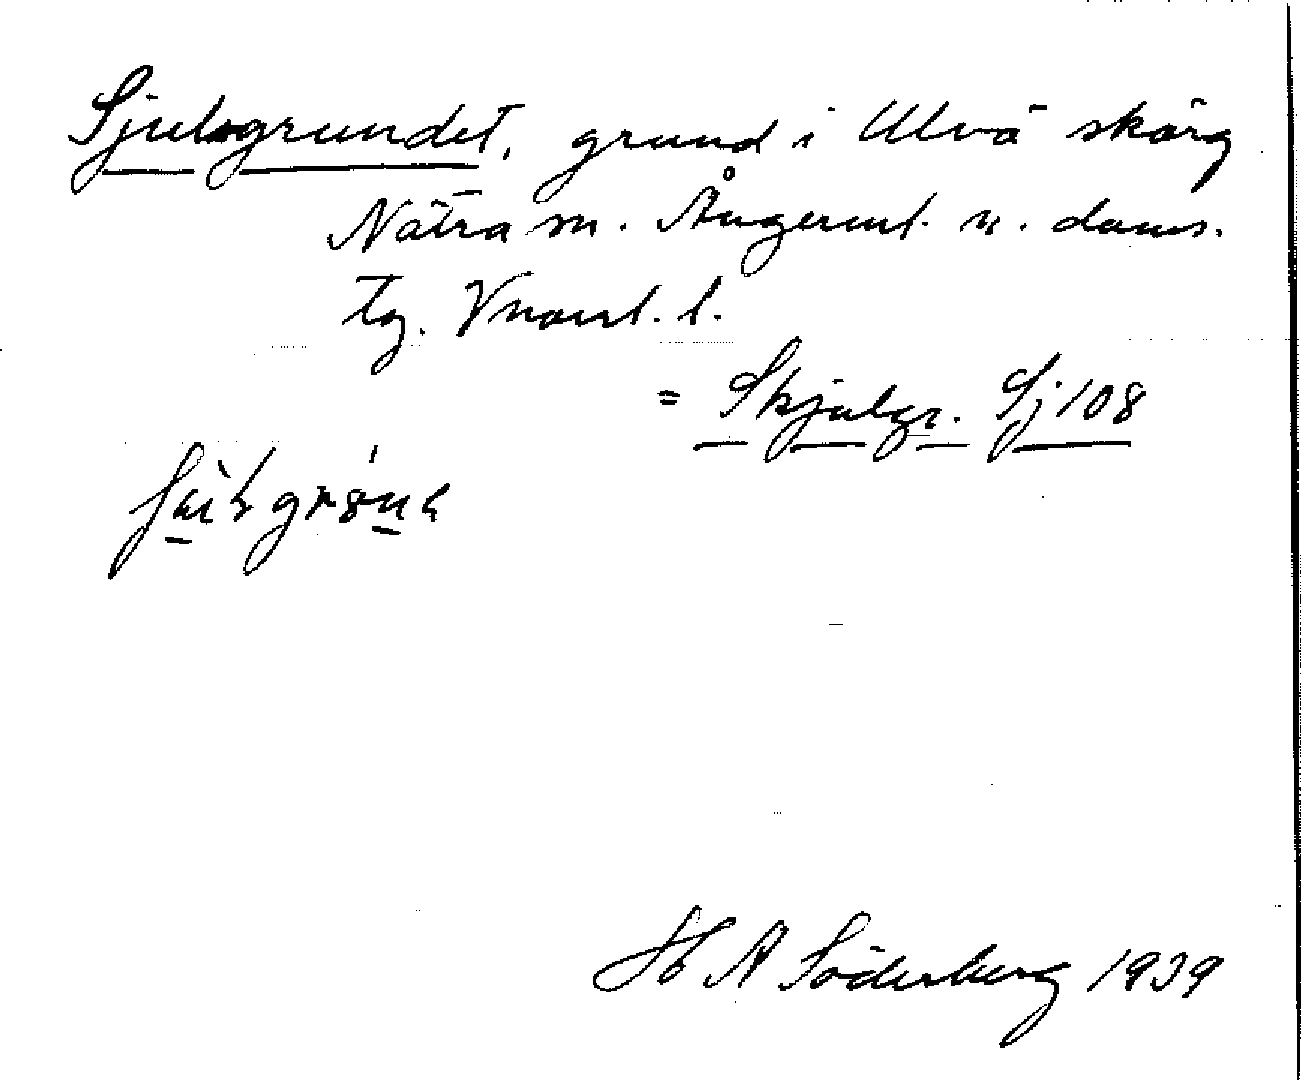 Sjulsgrundet, grund i Ulvö skärg
Nätra sn. Ångerml. n. doms.
tg. Vnorrl. l.
= Skjulgr. Sj 108
H A Söderberg 1939